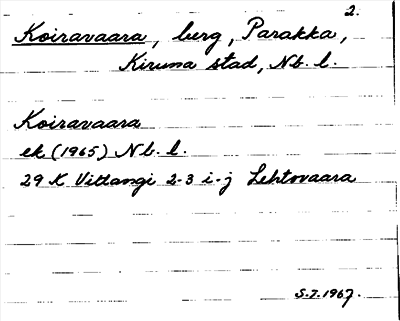 2.
Koiravaara, berg, Parakka,
Kiruna stad, Nb. l.
Koiravaara
ek (1965) Nb. l.
29 K Vittangi 2-3 i-j Lehtovaara
S.I. 1967.